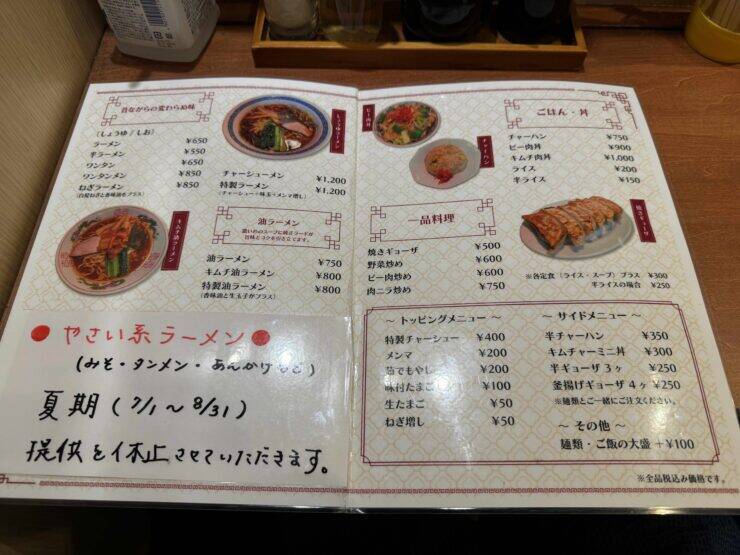 昔ながらの変わらぬ味
(しょうゆ / しお)
ラーメン ¥650
半ラーメン ¥550
ワンタン ¥650
ワンタンメン ¥850
ねぎラーメン ¥850
(白髪ねぎと香味油をプラス)
しょうゆラーメン
チャーシューメン ¥1,200
特製ラーメン ¥1,200
(チャーシュー+味玉+メンマ増し)
キムチ油ラーメン
油ラーメン
濃いめのスープに純正ラードが
旨味とコクを引き立てます。
油ラーメン ¥750
キムチ油ラーメン ¥800
特製油ラーメン ¥800
(香味油と生玉子がプラス)
● やさい系ラーメン ●
(みそ・タンメン・あんかけなど)
夏期 (7/1 ~ 8/31)
提供を休止させていただきます。
ピー肉丼
チャーハン
ごはん・丼
チャーハン ¥750
ピー肉丼 ¥900
キムチ肉丼 ¥1,000
ライス ¥200
半ライス ¥150
一品料理
焼きギョーザ ¥500
野菜炒め ¥600
ピー肉炒め ¥600
肉ニラ炒め ¥750
焼きギョーザ
※各定食 (ライス・スープ) プラス ¥300
半ライスの場合 ¥250
~ トッピングメニュー ~
特製チャーシュー ¥400
メンマ ¥200
茹でもやし ¥200
味付たまご ¥100
生たまご ¥50
ねぎ増し ¥50
~ サイドメニュー ~
半チャーハン ¥350
キムチャーミニ丼 ¥300
半ギョーザ 3ヶ ¥250
釜揚げギョーザ 4ヶ ¥250
※麺類とご一緒にご注文ください。
~ その他 ~
麺類・ご飯の大盛 +¥100
※全品税込み価格です。